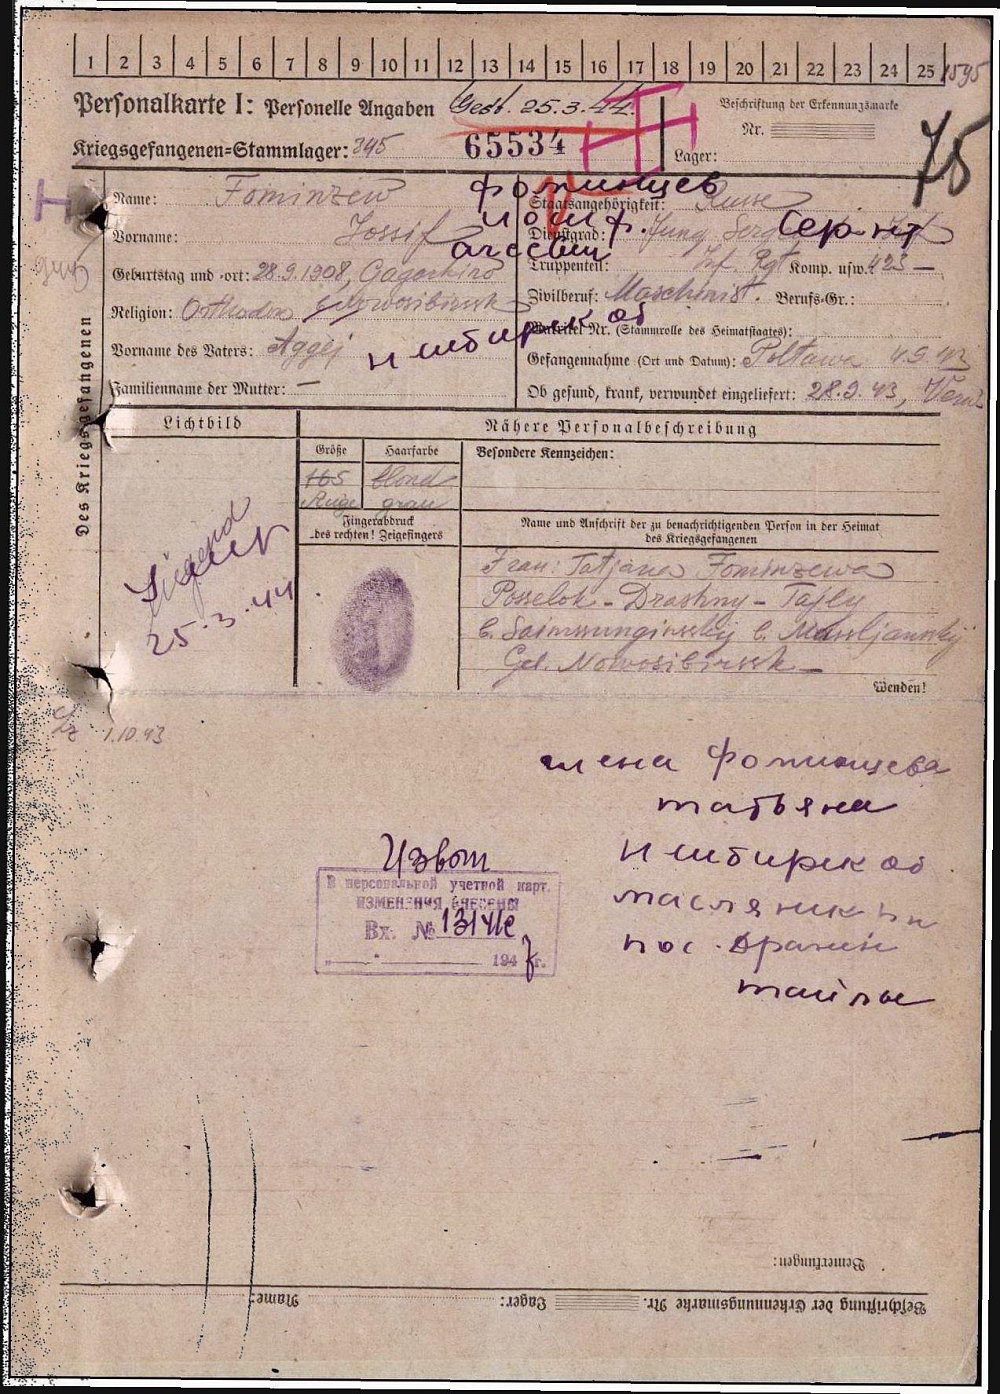 1 2 3 4 5 6 7 8 9 10 11 12 13 14 15 16 17 18 19 20 21 22 23 24 25 1595
Personalkarte I: Personelle Angaben Gest. 25.3.44.
Beschriftung der Erkennungsmarke
Nr.
Kriegsgefangenen=Stammlager: 345 65534
Lager:
75
Des Kriegsgefangenen
Name: Fominzew
Фоминцев
Vorname: Jossif
Иосиф.
Агеевич
Geburtstag und =ort: 28.9.1908,
Religion: Orthodox Nowosibirsk
Vorname des Vaters: Aggej
Н сибирск об
Familienname der Mutter: —
Staatsangehörigkeit: Russe
Dienstgrad: Jung. Serg. Сержнт
Truppenteil: Inf. Rgt Komp. usw. 423 —
Zivilberuf: Maschinist. Berufs=Gr.:
Matrikel Nr. (Stammrolle des Heimatstaates):
Gefangennahme (Ort und Datum): Poltawa 4.9.43
Ob gesund, krank, verwundet eingeliefert: 28.9.43,
Lichtbild
Nähere Personalbeschreibung
Größe Haarfarbe Besondere Kennzeichen:
165 blond
Auge grau
Fingerabdruck
des rechten! Zeigefingers
Name und Anschrift der zu benachrichtigenden Person in der Heimat
des Kriegsgefangenen
Frau: Tatjana Fominzewa
Posselok - Drashny - Tajly
Geb. Nowosibirsk —
25.3.44
Wenden!
1.10.43
жена Фоминцева
татьяна
Н сибирск об
маслянин рн
пос. Дражн
тайлы
Извот
В персональной учетной карт.
ИЗМЕНЕНИЯ ВНЕСЕНЫ
Вх. №
194 7 г.
Bemerkungen:
Beschriftung der Erkennungsmarke Nr. Lager: Name: